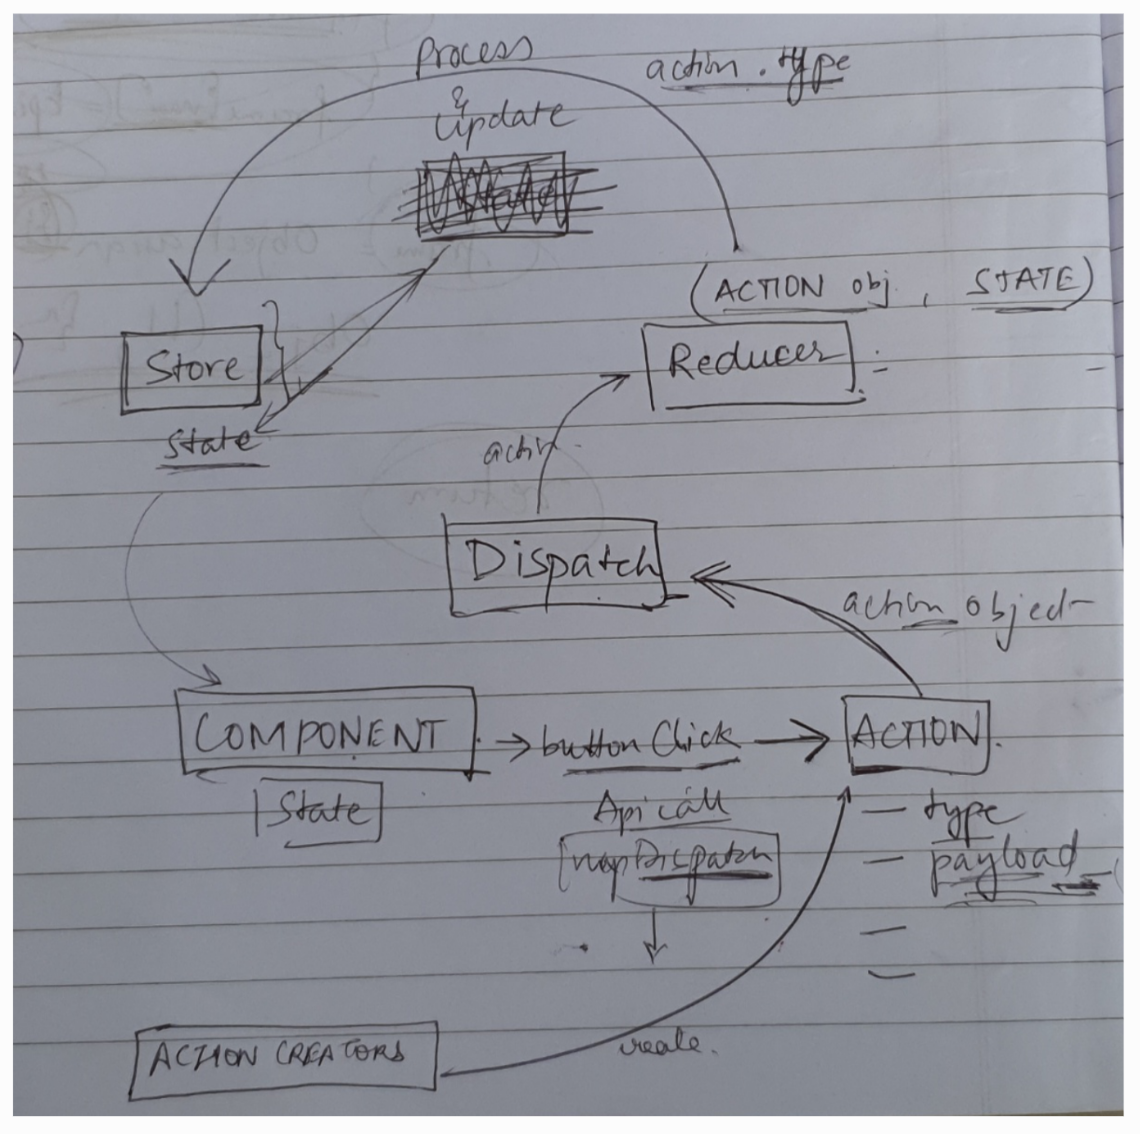 Process
action.type
&
Update
(ACTION obj, STATE)
Store
Reducer
state
Dispatch
action object
COMPONENT
button Click
ACTION
State
Api call
mapDispatch
- type
- payload
ACTION CREATORS
create.